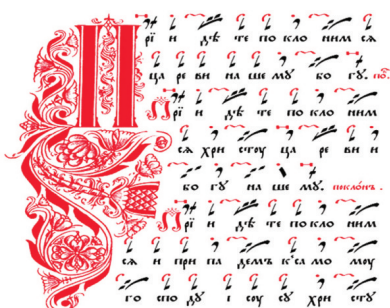 Прїи дѣ те по кло ним сѧ
ца ре ви на ше мꙋ бо гꙋ.
Прїи дѣ те по кло ним
сѧ хри стоу ца ре ви и
бо гꙋ на ше мꙋ. поклóнъ.
Прїи дѣ те по кло ним
сѧ и при па демъ к̾са мо моу
го спо дꙋ і соу сꙋ хри стꙋ